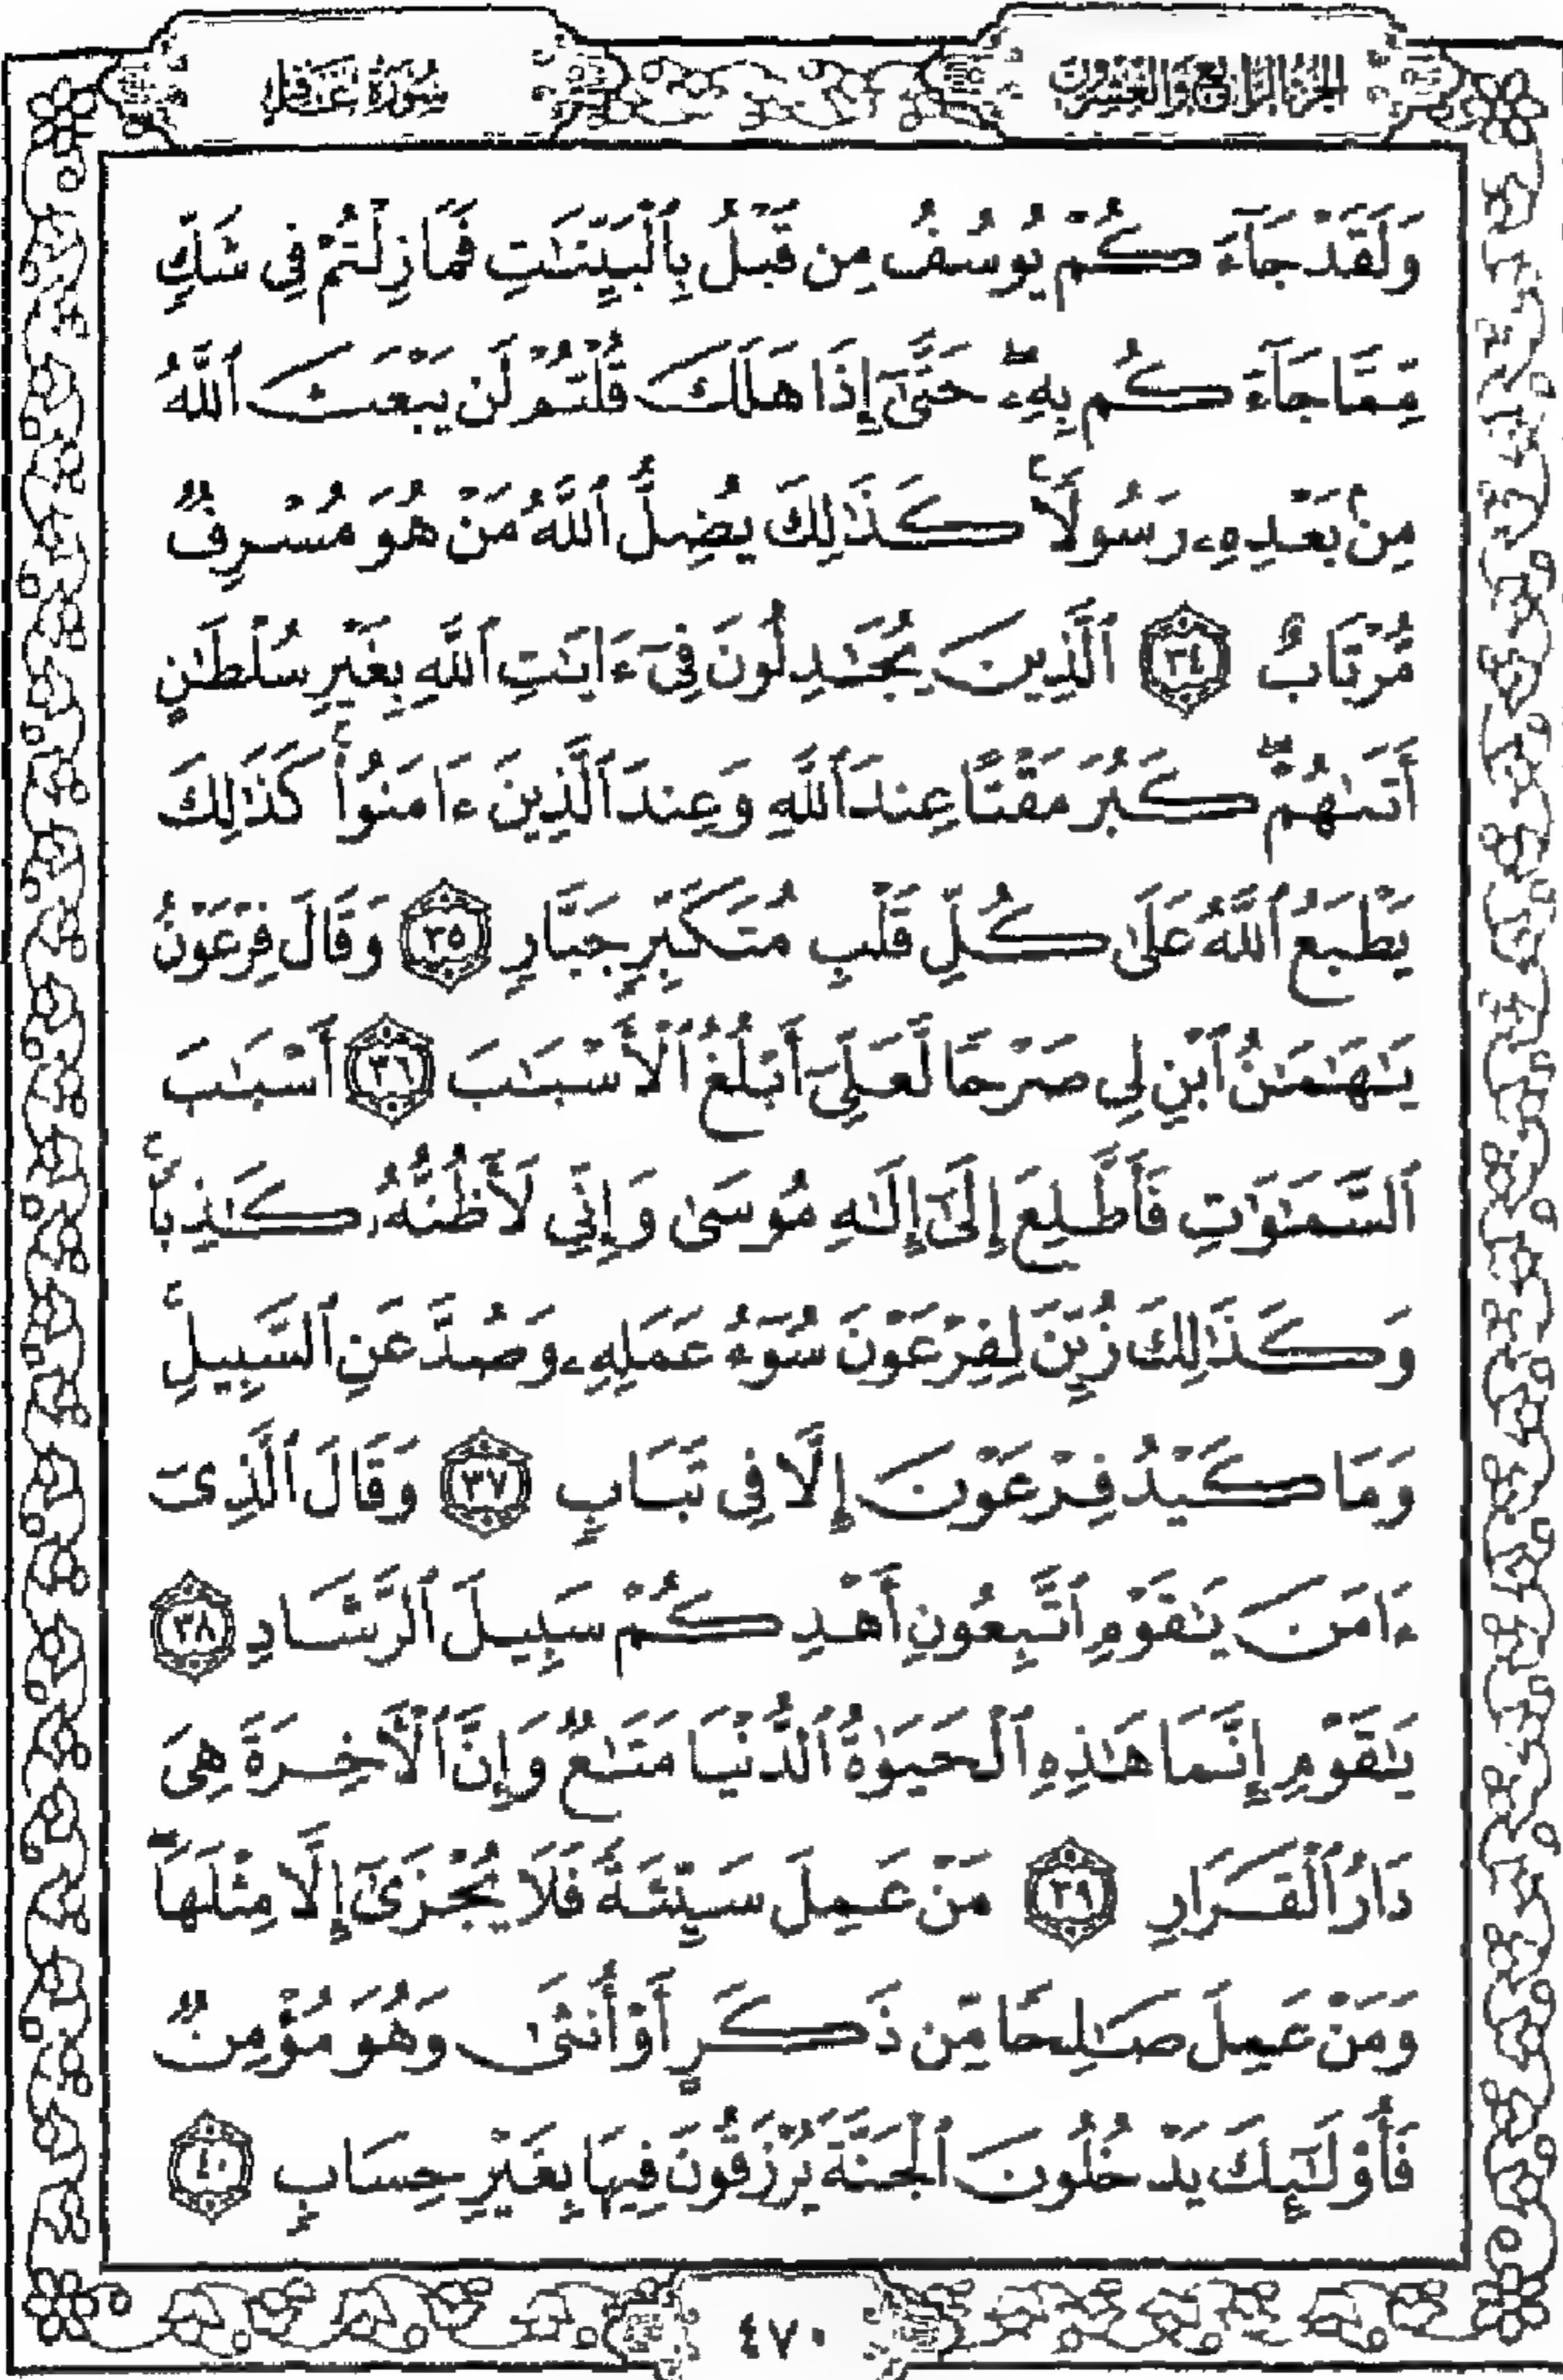 الجزء الرابع والعشرون
سورة غافر
وَلَقَدْ جَآءَكُمْ يُوسُفُ مِن قَبْلُ بِٱلْبَيِّنَٰتِ فَمَا زِلْتُمْ فِى شَكٍّ
مِّمَّا جَآءَكُم بِهِۦۖ حَتَّىٰٓ إِذَا هَلَكَ قُلْتُمْ لَن يَبْعَثَ ٱللَّهُ
مِنۢ بَعْدِهِۦ رَسُولًاۚ كَذَٰلِكَ يُضِلُّ ٱللَّهُ مَنْ هُوَ مُسْرِفٌ
مُّرْتَابٌ ٣٤ ٱلَّذِينَ يُجَٰدِلُونَ فِىٓ ءَايَٰتِ ٱللَّهِ بِغَيْرِ سُلْطَٰنٍ
أَتَىٰهُمْۖ كَبُرَ مَقْتًا عِندَ ٱللَّهِ وَعِندَ ٱلَّذِينَ ءَامَنُوا۟ۚ كَذَٰلِكَ
يَطْبَعُ ٱللَّهُ عَلَىٰ كُلِّ قَلْبِ مُتَكَبِّرٍ جَبَّارٍ ٣٥ وَقَالَ فِرْعَوْنُ
يَٰهَٰمَٰنُ ٱبْنِ لِى صَرْحًا لَّعَلِّىٓ أَبْلُغُ ٱلْأَسْبَٰبَ ٣٦ أَسْبَٰبَ
ٱلسَّمَٰوَٰتِ فَأَطَّلِعَ إِلَىٰٓ إِلَٰهِ مُوسَىٰ وَإِنِّى لَأَظُنُّهُۥ كَٰذِبًاۚ
وَكَذَٰلِكَ زُيِّنَ لِفِرْعَوْنَ سُوٓءُ عَمَلِهِۦ وَصُدَّ عَنِ ٱلسَّبِيلِۚ
وَمَا كَيْدُ فِرْعَوْنَ إِلَّا فِى تَبَابٍ ٣٧ وَقَالَ ٱلَّذِىٓ
ءَامَنَ يَٰقَوْمِ ٱتَّبِعُونِ أَهْدِكُمْ سَبِيلَ ٱلرَّشَادِ ٣٨
يَٰقَوْمِ إِنَّمَا هَٰذِهِ ٱلْحَيَوٰةُ ٱلدُّنْيَا مَتَٰعٌ وَإِنَّ ٱلْأٓخِرَةَ هِىَ
دَارُ ٱلْقَرَارِ ٣٩ مَنْ عَمِلَ سَيِّئَةً فَلَا يُجْزَىٰٓ إِلَّا مِثْلَهَاۖ
وَمَنْ عَمِلَ صَٰلِحًا مِّن ذَكَرٍ أَوْ أُنثَىٰ وَهُوَ مُؤْمِنٌ
فَأُو۟لَٰٓئِكَ يَدْخُلُونَ ٱلْجَنَّةَ يُرْزَقُونَ فِيهَا بِغَيْرِ حِسَابٍ ٤٠
٤٧٠